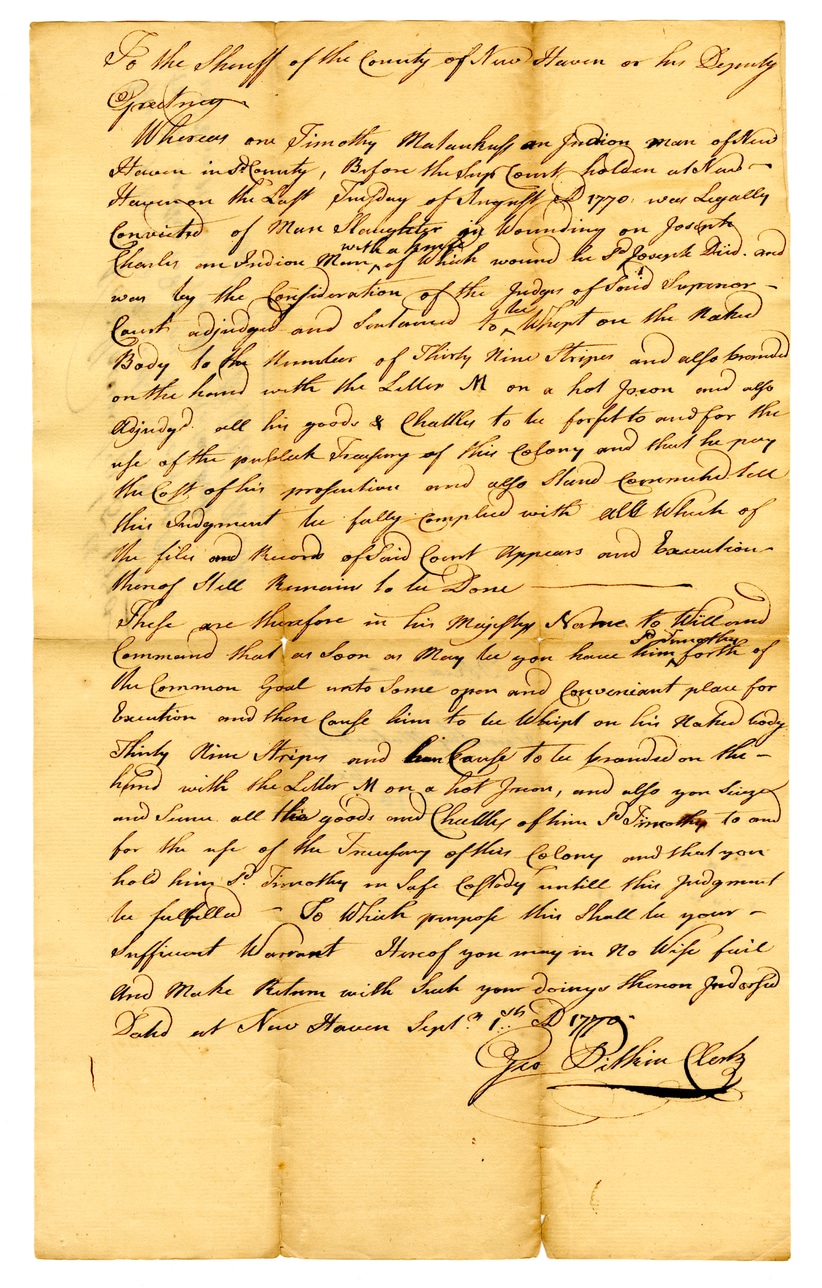 To the Sheriff of the County of New Haven or his Deputy
Greeting
Whereas one Timothy Matauhass an Indion man of New
Haven in sd County, Before the Supr Court holden at New-
Haven on the Last Tuesday of August AD 1770 was Legally
Convicted of Man Slaughter in Wounding on Joseph
Charles an Indion Man with a knife of Which wound he sd Joseph Died. and
was by the Consideration of the Judges of Said Superior-
Court adjudged and Sentanced to be Whipt on the Naked
Body to the Number of Thirty Nine Stripes and also branded
on the hand with the Letter M on a hot Jron and also
Adjudgd all his goods & Chattles to be forfit to and for the
use of the publick Treasury of this Colony and that he pay
the Cost of his prosecution and also Stand Committed till
this Judgment be fully complied with all Which of
the files and Records of Said Court Appears and Execution-
thereof Still Remains to be Done
These are therefore in his Majestys Name to Will and
Command that as Soon as May be you have him sd Timothy forth of
the Common Goal unto Some open and Conveniant place for
Execution and there Cause him to be Whipt on his Naked body
Thirty Nine Stripes and him Cause to be branded on the-
hand with the Letter M on a hot Jron, and also you Sieze
and Secure all the goods and Chattles of him sd Timothy to and
for the use of the Treasury of this Colony and that you
hold him sd Timothy in Safe Costody untill this Judgment
be fulfilled - To Which purpose this Shall be your-
Sufficient Warrant Hereof you may in No Wise fail
And Make Return with Such your doings thereon Jndorsed
Datd at New Haven Septr 1st AD 1770
Geo Pitkin Clerk